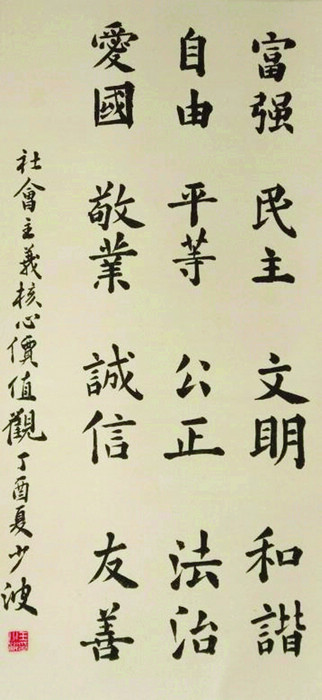 富强 民主 文明 和諧
自由 平等 公正 法治
愛國 敬業 誠信 友善
社會主義核心價值觀 丁酉夏 少波